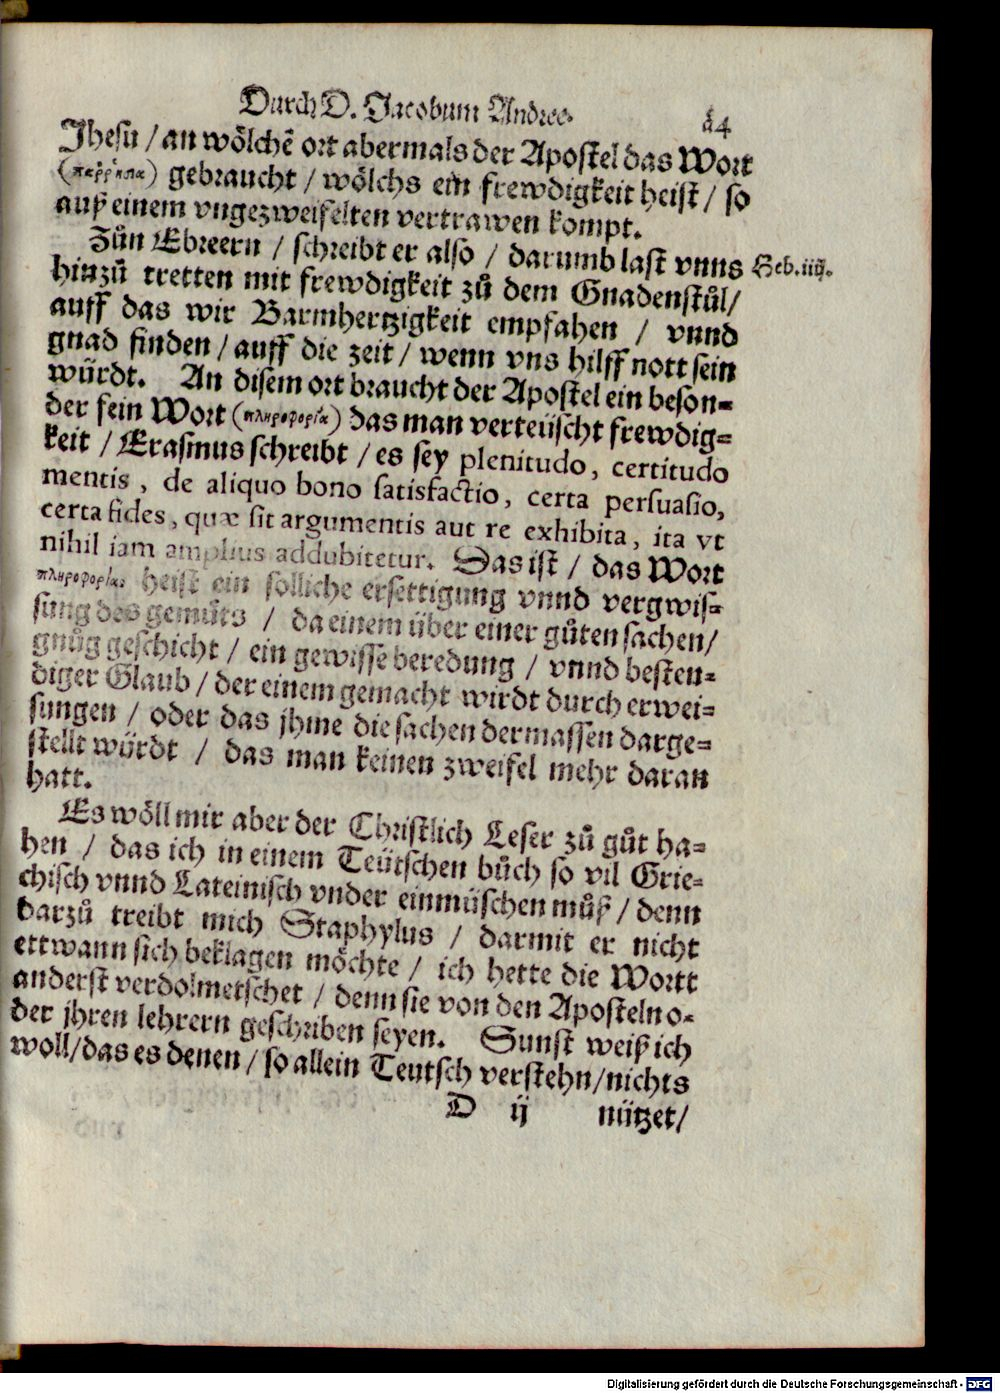 Durch D. Jacobum Andree. 14
Jhesu / an wölchē ort abermals der Apostel das Wort
(παῤῥησία) gebraucht / wölchs ein frewdigkeit heist / so
auß einem vngezweifelten vertrawen kompt.
Zůn Ebreern / schreibt er also / darumb last vnns Heb. iiij.
hinzů tretten mit frewdigkeit zů dem Gnadenstůl /
auff das wir Barmhertzigkeit empfahen / vnnd
gnad finden / auff die zeit / wenn vns hilff nott sein
würdt. An disem ort braucht der Apostel ein beson-
der fein Wort (πληροφορία) das man verteüscht frewdig-
keit / Erasmus schreibt / es sey plenitudo, certitudo
mentis, de aliquo bono satisfactio, certa persuasio,
certa fides, quæ sit argumentis aut re exhibita, ita vt
nihil iam amplius addubitetur. Das ist / das Wort
πληροφορία. heist ein solliche ersettigung vnnd vergwis-
sung des gemüts / da einem über einer gůten sachen /
gnůg geschicht / ein gewisse beredung / vnnd besten-
diger Glaub / der einem gemacht wirdt durch erwei-
sungen / oder das jhme die sachen dermassen darge-
stellt würdt / das man keinen zweifel mehr daran
hatt.
Es wöll mir aber der Christlich Leser zů gůt ha-
hen / das ich in einem Teütschen bůch so vil Grie-
chisch vnnd Lateinisch vnder einmüschen můß / denn
darzů treibt mich Staphylus / darmit er nicht
ettwann sich beklagen möchte / ich hette die Wortt
anderst verdolmetschet / denn sie von den Aposteln o-
der jhren lehrern geschriben seyen. Sunst weiß ich
woll / das es denen / so allein Teutsch verstehn / nichts
D ij nützet /
Digitalisierung gefördert durch die Deutsche Forschungsgemeinschaft - DFG